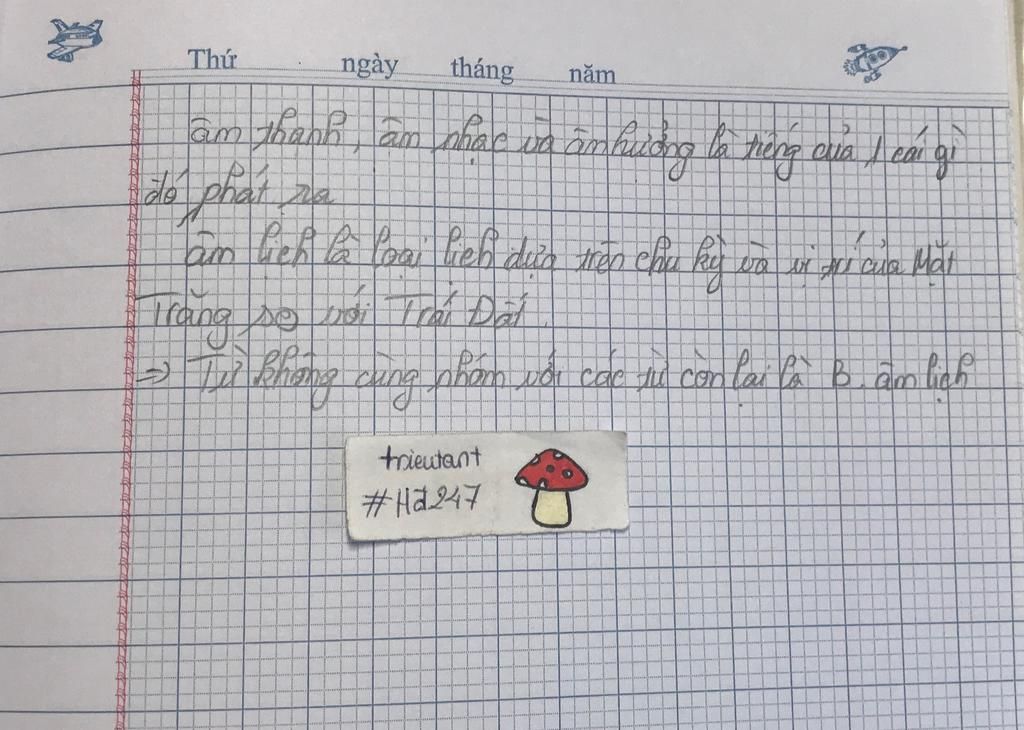 Thứ ngày tháng năm
âm thanh, âm nhạc và âm hưởng là tiếng của 1 cái gì
đó phát ra
âm lịch là loại lịch dựa trên chu kỳ và vị trí của Mặt
Trăng so với Trái Đất.
=> Từ không cùng nhóm với các từ còn lại là B. âm lịch
trieutant
#Hd247